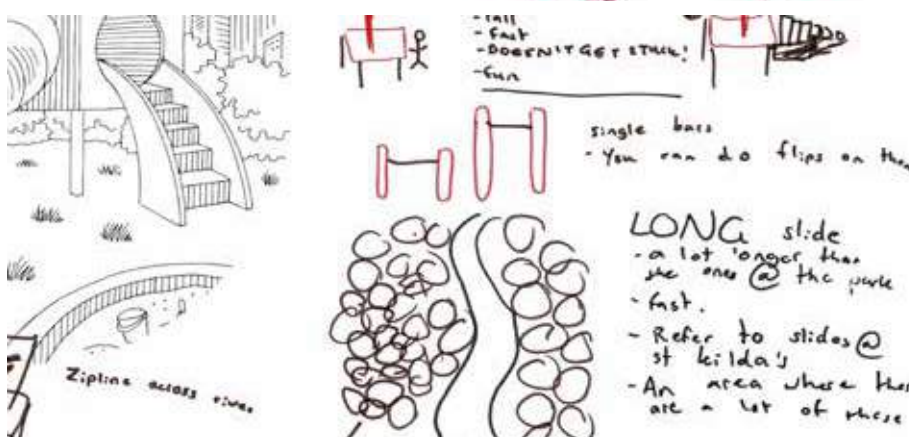 - Tall
- Fast
- DOESN'T GET STUCK!
- Fun
single bars
- You can do flips on them
LONG slide
- a lot longer than
the ones @ the park
- fast.
- Refer to slides @
st kilda's
- An area where there
are a lot of these
Zipline across river